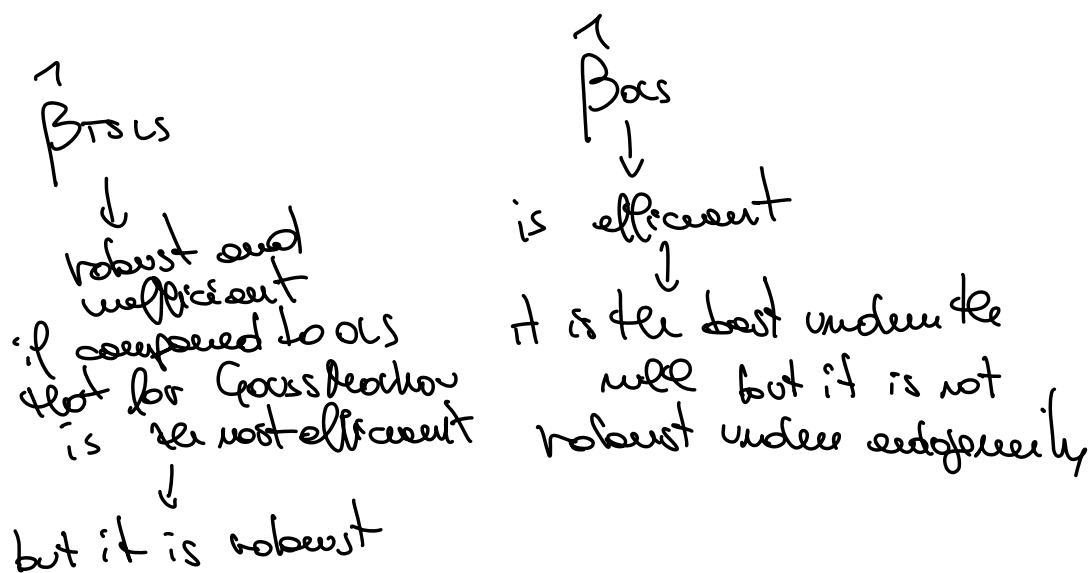 β̂TSLS
↓
robust and
inefficient
if compared to OLS
that for Gauss Markov
is the most efficient
↓
but it is robust
β̂OLS
↓
is efficient
↓
it is the best under the
null but it is not
robust under endogeneity